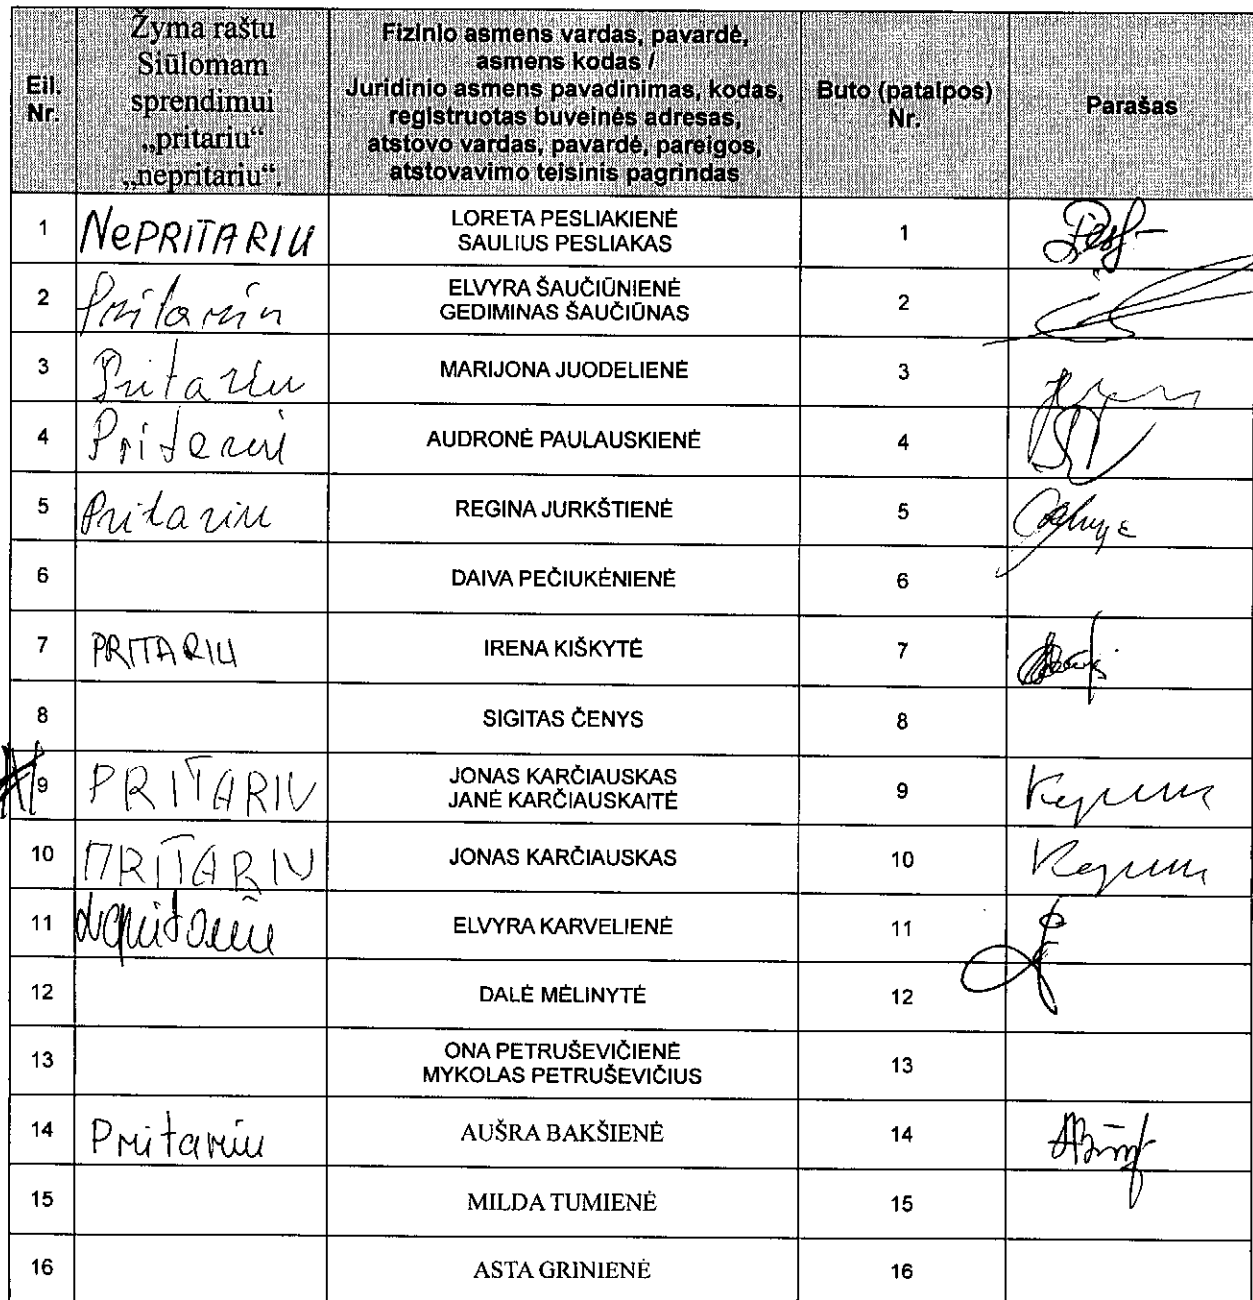 Eil. Nr.
Žyma raštu
Siūlomam
sprendimui
„pritariu“
„nepritariu“.
Fizinio asmens vardas, pavardė,
asmens kodas /
Juridinio asmens pavadinimas, kodas,
registruotas buveinės adresas,
atstovo vardas, pavardė, pareigos,
atstovavimo teisinis pagrindas
Buto (patalpos)
Nr.
Parašas
1 NePRITARIU LORETA PESLIAKIENĖ 1
SAULIUS PESLIAKAS
2 Pritariu ELVYRA ŠAUČIŪNIENĖ 2
GEDIMINAS ŠAUČIŪNAS
3 Pritariu MARIJONA JUODELIENĖ 3
4 Pritariu AUDRONĖ PAULAUSKIENĖ 4
5 Pritariu REGINA JURKŠTIENĖ 5
6 DAIVA PEČIUKĖNIENĖ 6
7 PRITARIU IRENA KIŠKYTĖ 7
8 SIGITAS ČENYS 8
9 PRITARIU JONAS KARČIAUSKAS 9
JANĖ KARČIAUSKAITĖ
10 PRITARIU JONAS KARČIAUSKAS 10
11 ELVYRA KARVELIENĖ 11
12 DALĖ MĖLINYTĖ 12
13 ONA PETRUŠEVIČIENĖ 13
MYKOLAS PETRUŠEVIČIUS
14 Pritariu AUŠRA BAKŠIENĖ 14
15 MILDA TUMIENĖ 15
16 ASTA GRINIENĖ 16